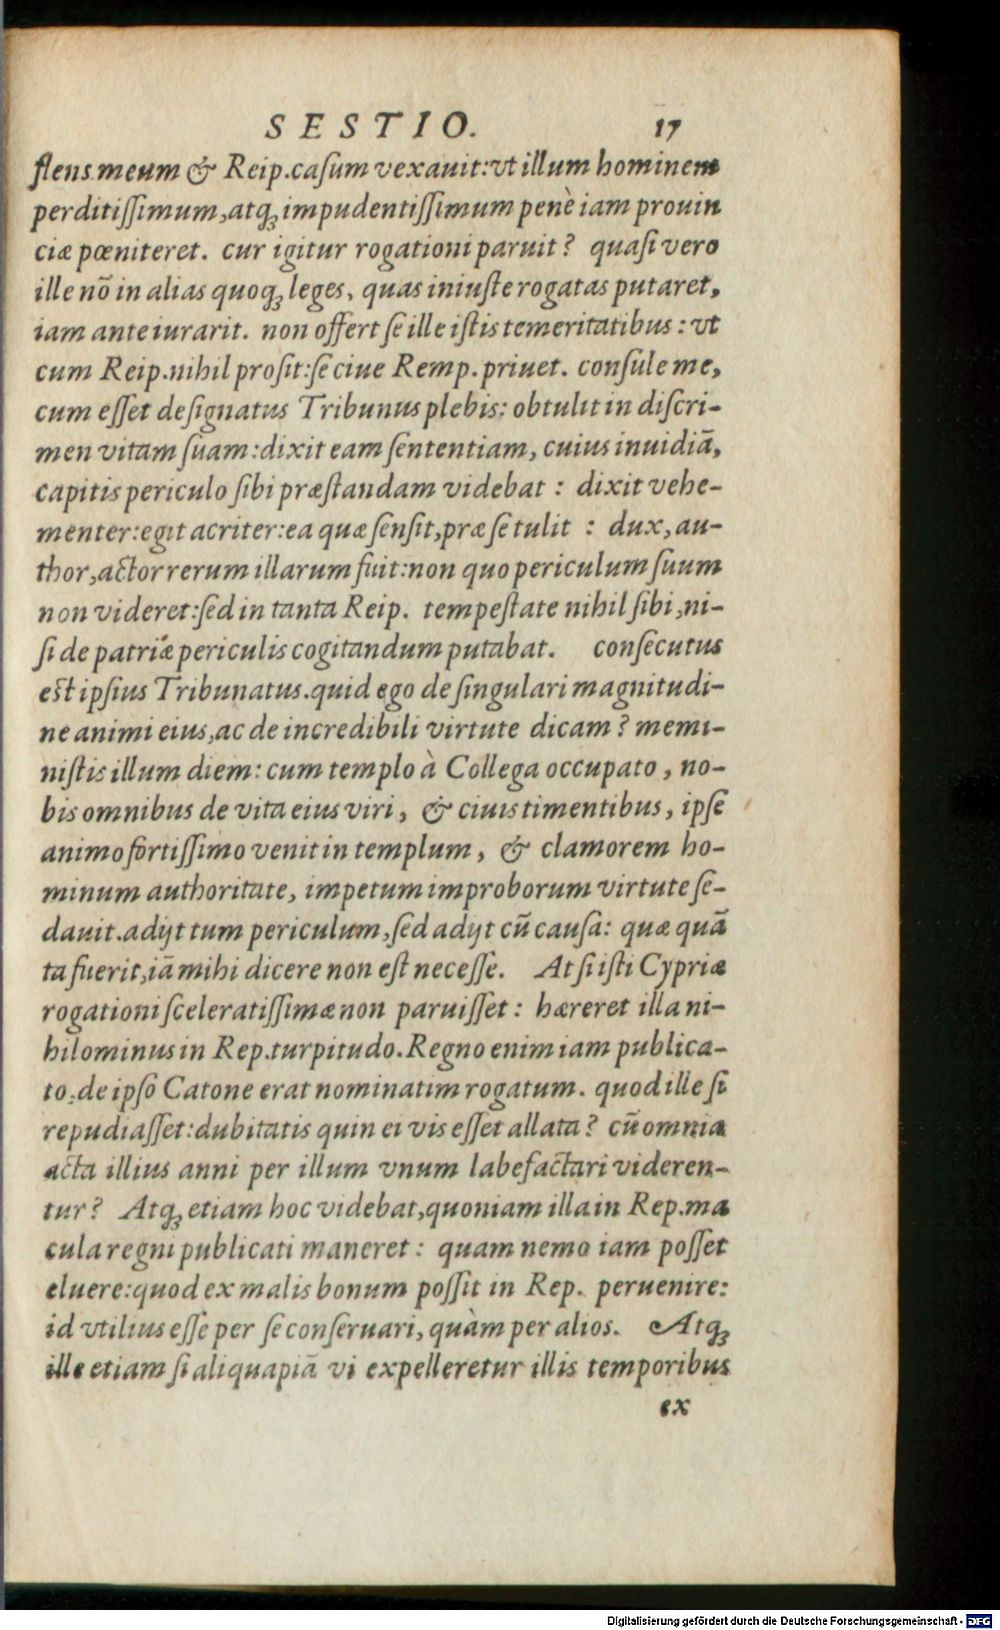 SESTIO. 17
flens meum & Reip.caſum vexauit:vt illum hominem
perditiſſimum,atq; impudentiſſimum penè iam prouin
ciæ pœniteret. cur igitur rogationi paruit? quaſi vero
ille nō in alias quoq; leges, quas iniuſte rogatas putaret,
iam ante iurarit. non offert ſe ille iſtis temeritatibus : vt
cum Reip.nihil proſit:ſe ciue Remp.priuet. conſule me,
cum eſſet deſignatus Tribunus plebis: obtulit in diſcri-
men vitam ſuam:dixit eam ſententiam, cuius inuidiā,
capitis periculo ſibi præſtandam videbat : dixit vehe-
menter:egit acriter:ea quæ ſenſit,præ ſe tulit : dux, au-
thor,actor rerum illarum fuit:non quo periculum ſuum
non videret:ſed in tanta Reip. tempeſtate nihil ſibi,ni-
ſi de patriæ periculis cogitandum putabat. conſecutus
est ipſius Tribunatus.quid ego de ſingulari magnitudi-
ne animi eius,ac de incredibili virtute dicam? memi-
niſtis illum diem: cum templo à Collega occupato, no-
bis omnibus de vita eius viri, & ciuis timentibus, ipſe
animo fortiſſimo venit in templum, & clamorem ho-
minum authoritate, impetum improborum virtute ſe-
dauit.adijt tum periculum,ſed adijt cū cauſa: quæ quā
ta fuerit,iā mihi dicere non eſt neceſſe. At ſi iſti Cypriæ
rogationi ſceleratiſſimæ non paruiſſet : hæreret illa ni-
hilominus in Rep.turpitudo.Regno enim iam publica-
to,de ipſo Catone erat nominatim rogatum. quod ille ſi
repudiaſſet:dubitatis quin ei vis eſſet allata? cū omnia
acta illius anni per illum vnum labefactari videren-
tur? Atq; etiam hoc videbat,quoniam illa in Rep.ma
cula regni publicati maneret : quam nemo iam poſſet
eluere:quod ex malis bonum poſſit in Rep. peruenire:
id vtilius eſſe per ſe conſeruari, quàm per alios. Atq;
ille etiam ſi aliquapiā vi expelleretur illis temporibus
ex
Digitalisierung gefördert durch die Deutsche Forschungsgemeinschaft - DFG